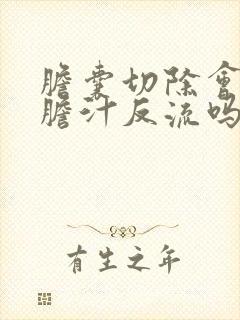 膽囊切除會
膽汁反流嗎
有生之年